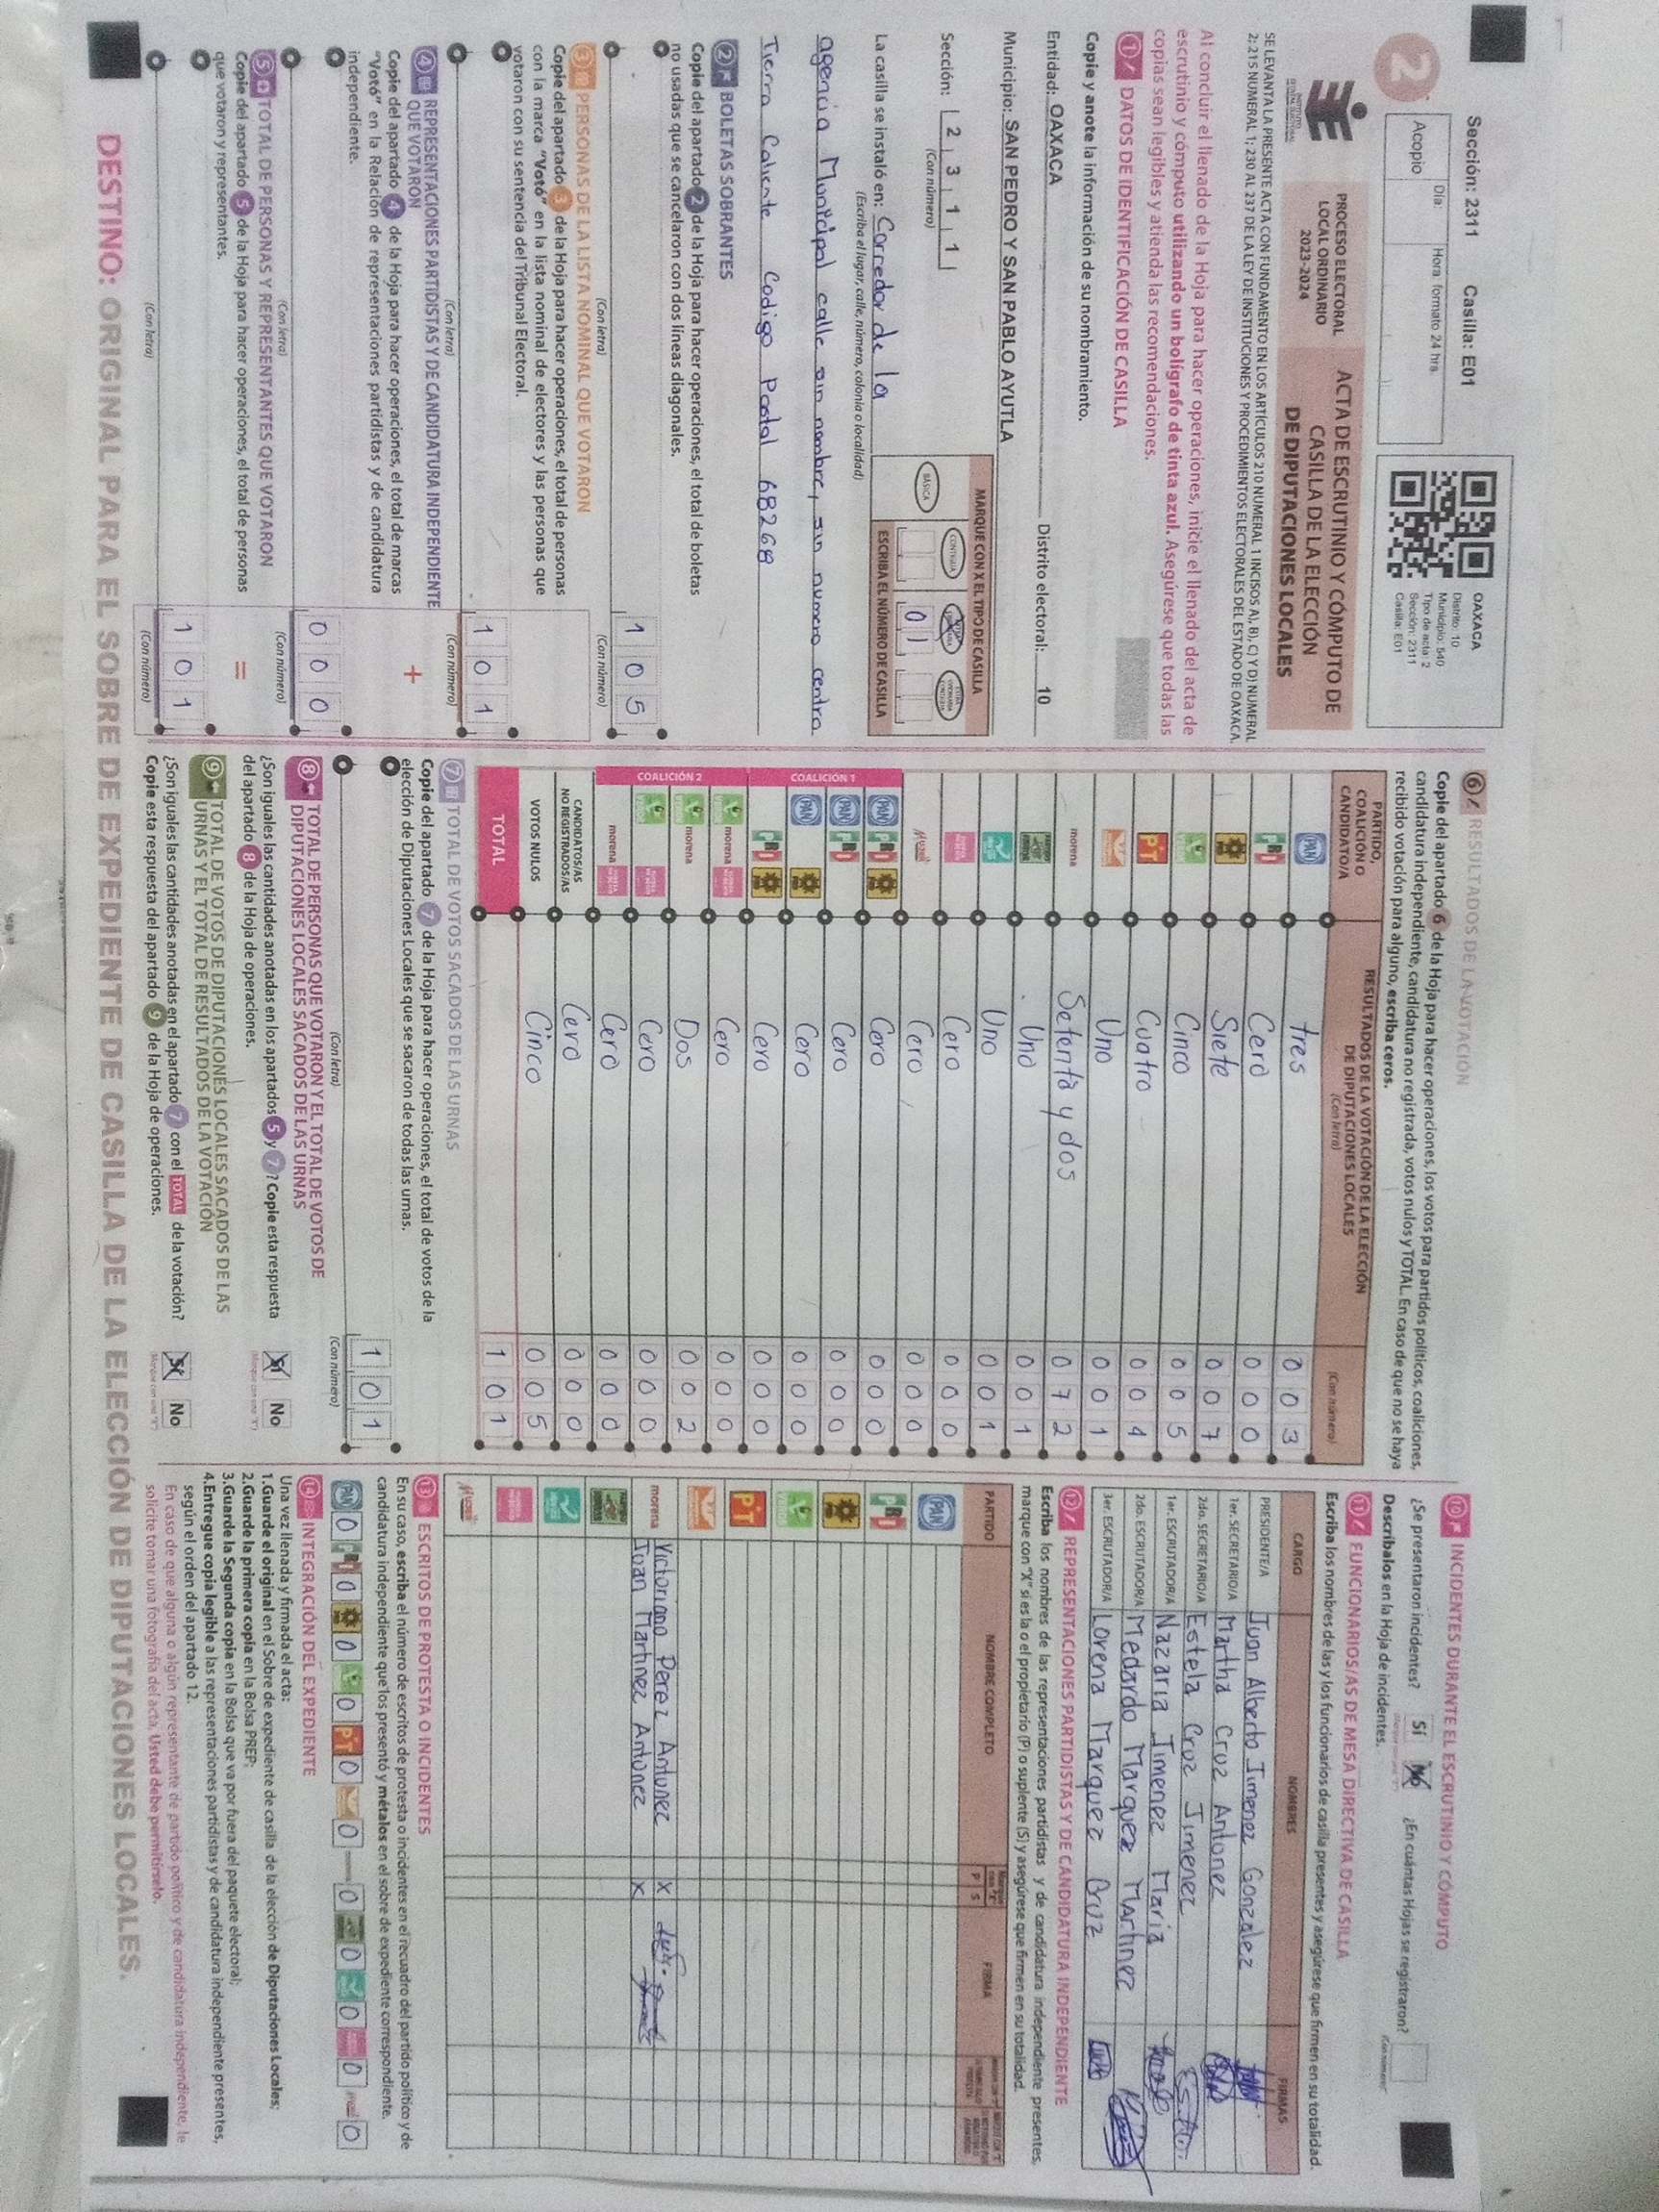 Sección: 2311 Casilla: E01
2
Día: Hora: formato 24 hrs.
Acopio
OAXACA
Distrito: 10
Municipio: 540
Tipo de acta: 2
Sección: 2311
Casilla: E01
PROCESO ELECTORAL
LOCAL ORDINARIO
2023-2024
ACTA DE ESCRUTINIO Y CÓMPUTO DE
CASILLA DE LA ELECCIÓN
DE DIPUTACIONES LOCALES
SE LEVANTA LA PRESENTE ACTA CON FUNDAMENTO EN LOS ARTÍCULOS 210 NUMERAL 1 INCISOS A), B), C) Y D) NUMERAL
2; 215 NUMERAL 1; 230 AL 237 DE LA LEY DE INSTITUCIONES Y PROCEDIMIENTOS ELECTORALES DEL ESTADO DE OAXACA.
Al concluir el llenado de la Hoja para hacer operaciones, inicie el llenado del acta de
escrutinio y cómputo utilizando un bolígrafo de tinta azul. Asegúrese que todas las
copias sean legibles y atienda las recomendaciones.
1 DATOS DE IDENTIFICACIÓN DE CASILLA
Copie y anote la información de su nombramiento.
Entidad: OAXACA Distrito electoral: 10
Municipio: SAN PEDRO Y SAN PABLO AYUTLA
Sección: 2 3 1 1
(Con número)
MARQUE CON X EL TIPO DE CASILLA
BÁSICA CONTIGUA
0 1
ESCRIBA EL NÚMERO DE CASILLA
La casilla se instaló en: Corredor de la
(Escriba el lugar, calle, número, colonia o localidad)
agencia Municipal calle sin nombre, sin numero centro
Tierra Caliente Codigo Postal 68268
2 BOLETAS SOBRANTES
Copie del apartado 2 de la Hoja para hacer operaciones, el total de boletas
no usadas que se cancelaron con dos líneas diagonales.
1 0 5
(Con letra) (Con número)
3 PERSONAS DE LA LISTA NOMINAL QUE VOTARON
Copie del apartado 3 de la Hoja para hacer operaciones, el total de personas
con la marca "Votó" en la lista nominal de electores y las personas que
votaron con su sentencia del Tribunal Electoral.
1 0 1
(Con letra) (Con número)
4 REPRESENTACIONES PARTIDISTAS Y DE CANDIDATURA INDEPENDIENTE
QUE VOTARON
+
Copie del apartado 4 de la Hoja para hacer operaciones, el total de marcas
"Votó" en la Relación de representaciones partidistas y de candidatura
independiente.
0 0 0
(Con letra) (Con número)
5 TOTAL DE PERSONAS Y REPRESENTANTES QUE VOTARON
=
Copie del apartado 5 de la Hoja para hacer operaciones, el total de personas
que votaron y representantes.
1 0 1
(Con letra) (Con número)
6 RESULTADOS DE LA VOTACIÓN
Copie del apartado 6 de la Hoja para hacer operaciones, los votos para partidos políticos, coaliciones,
candidatura independiente, candidatura no registrada, votos nulos y TOTAL. En caso de que no se haya
recibido votación para alguno, escriba ceros.
PARTIDO,
COALICIÓN O
CANDIDATO/A
RESULTADOS DE LA VOTACIÓN DE LA ELECCIÓN
DE DIPUTACIONES LOCALES
(Con letra)
(Con número)
PAN tres 0 0 3
PRI Cero 0 0 0
Siete 0 0 7
Cinco 0 0 5
PT Cuatro 0 0 4
Uno 0 0 1
morena Setenta y dos 0 7 2
Uno 0 0 1
Uno 0 0 1
Cero 0 0 0
Cero 0 0 0
COALICIÓN 1
PAN PRI Cero 0 0 0
PAN PRI Cero 0 0 0
PAN Cero 0 0 0
PRI Cero 0 0 0
COALICIÓN 2
morena Cero 0 0 0
morena Dos 0 0 2
Cero 0 0 0
morena Cero 0 0 0
CANDIDATOS/AS
NO REGISTRADOS/AS Cero 0 0 0
VOTOS NULOS Cinco 0 0 5
TOTAL 1 0 1
7 TOTAL DE VOTOS SACADOS DE LAS URNAS
Copie del apartado 7 de la Hoja para hacer operaciones, el total de votos de la
elección de Diputaciones Locales que se sacaron de todas las urnas.
1 0 1
(Con letra) (Con número)
8 TOTAL DE PERSONAS QUE VOTARON Y EL TOTAL DE VOTOS DE
DIPUTACIONES LOCALES SACADOS DE LAS URNAS
¿Son iguales las cantidades anotadas en los apartados 5 y 7? Copie esta respuesta
del apartado 8 de la Hoja de operaciones.
Sí No
9 TOTAL DE VOTOS DE DIPUTACIONES LOCALES SACADOS DE LAS
URNAS Y EL TOTAL DE RESULTADOS DE LA VOTACIÓN
¿Son iguales las cantidades anotadas en el apartado 7 con el TOTAL de la votación?
Copie esta respuesta del apartado 9 de la Hoja de operaciones.
Sí No
10 INCIDENTES DURANTE EL ESCRUTINIO Y CÓMPUTO
¿Se presentaron incidentes? Sí No ¿En cuántas Hojas se registraron?
Descríbalos en la Hoja de incidentes.
11 FUNCIONARIOS/AS DE MESA DIRECTIVA DE CASILLA
Escriba los nombres de las y los funcionarios de casilla presentes y asegúrese que firmen en su totalidad.
CARGO NOMBRES FIRMAS
PRESIDENTE/A Juan Alberto Jimenez Gonzalez
1er. SECRETARIO/A Martha Cruz Antonez
2do. SECRETARIO/A Estela Cruz Jimenez
1er. ESCRUTADOR/A Nazaria Jimenez Maria
2do. ESCRUTADOR/A Medardo Marquez Martinez
3er. ESCRUTADOR/A Lorena Marquez Cruz
12 REPRESENTACIONES PARTIDISTAS Y DE CANDIDATURA INDEPENDIENTE
Escriba los nombres de las representaciones partidistas y de candidatura independiente presentes,
marque con "X" si es la o el propietario (P) o suplente (S) y asegúrese que firmen en su totalidad.
PARTIDO NOMBRE COMPLETO P S FIRMA
PAN
PRI
PT
morena Victoriano Perez Antunez X
Juan Martinez Antonez X
13 ESCRITOS DE PROTESTA O INCIDENTES
En su caso, escriba el número de escritos de protesta o incidentes en el recuadro del partido político y de
candidatura independiente que los presentó y métalos en el sobre de expediente correspondiente.
PAN 0 PRI 0 0 0 PT 0 0 0 0 0 0 0
14 INTEGRACIÓN DEL EXPEDIENTE
Una vez llenada y firmada el acta:
1.Guarde el original en el Sobre de expediente de casilla de la elección de Diputaciones Locales;
2.Guarde la primera copia en la Bolsa PREP;
3.Guarde la Segunda copia en la Bolsa que va por fuera del paquete electoral;
4.Entregue copia legible a las representaciones partidistas y de candidatura independiente presentes,
según el orden del apartado 12.
En caso de que alguna o algún representante de partido político y de candidatura independiente, le
solicite tomar una fotografía del acta, Usted debe permitírselo.
DESTINO: ORIGINAL PARA EL SOBRE DE EXPEDIENTE DE CASILLA DE LA ELECCIÓN DE DIPUTACIONES LOCALES.